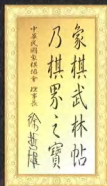 象棋武林帖
乃棋界之寶
中華民國象棋協會 理事長